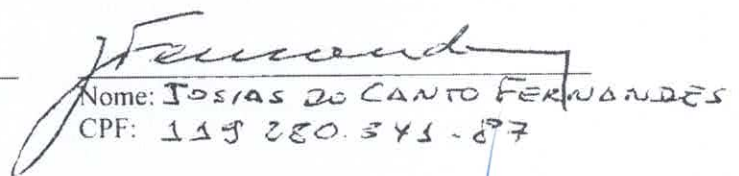 Nome: JOSIAS DO CANTO FERNANDES
CPF: 119 280.341-87